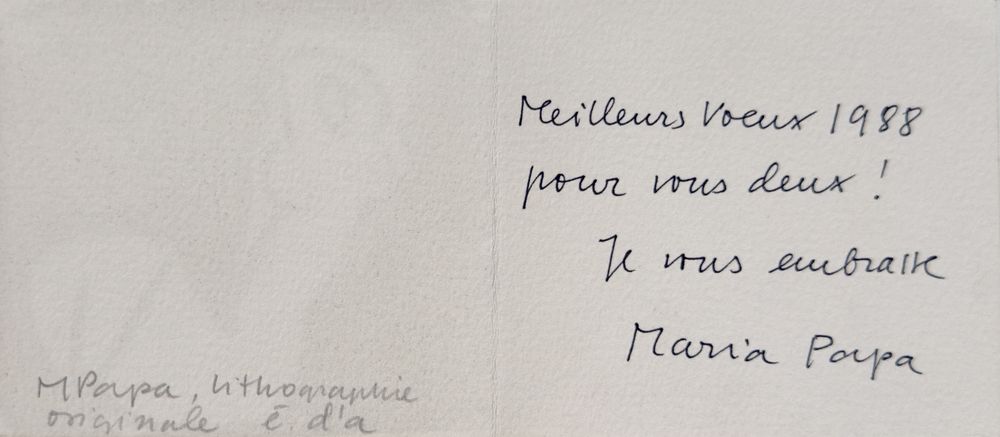 Meilleurs Voeux 1988
pour vous deux !
Je vous embrasse
Maria Papa
MPapa, lithographie
originale é. d'a